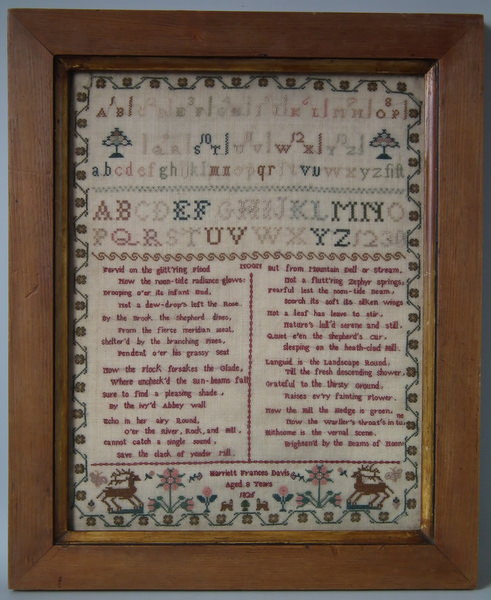 A B C D E F G H I J K L M N O P
Q R S T U V W X Y Z
a b c d e f g h i j k l m n o p q r s t v u w x y z
A B C D E F G H I J K L M N O
P Q R S T U V W X Y Z 1 2 3
NOON
Fervid on the glitt'ring flood
Now the noon-tide radiance glows:
Drooping o'er its infant Bud,
Not a dew-drop's left the Rose.
By the Brook the Shepherd dines,
From the fierce meridian heat,
Shelter'd by the branching Pines,
Pendent o'er his grassy seat
Now the Flock forsakes the Glade,
Where uncheck'd the sun-beams fall
Sure to find a pleasing shade,
By the ivy'd Abbey wall
Echo in her airy Round,
O'er the River, Rock, and Hill,
Cannot catch a single sound,
Save the clack of yonder Mill.
But from Mountain Dell or Stream,
Not a flutt'ring Zephyr springs:
Fearful lest the noon-tide Beam,
Scorch its soft its silken wings
Not a leaf has leave to stir,
Nature's lull'd serene and still.
Quiet e'en the shepherd's Cur,
Sleeping on the heath-clad Hill.
Languid is the Landscape Round,
Till the fresh descending shower,
Grateful to the thirsty Ground,
Raises ev'ry fainting Flower.
Now the Hill the Hedge is green,
Now the Warbler's throat's in tune
Blithsome is the vernal scene,
Brighten'd by the Beams of Noon
Harriett Frances Davis
Aged 8 Years